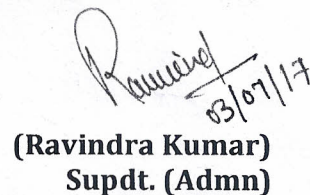 Ravindra
03/07/17
(Ravindra Kumar)
Supdt. (Admn)